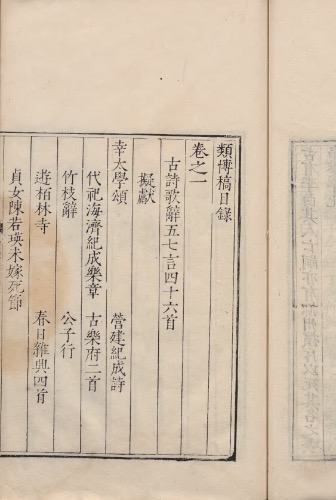 類博稿目錄
卷之一
古詩歌辭五七言四十六首
擬獻
幸太學頌
營建紀成詩
代祀海濟紀成樂章
古樂府二首
竹枝辭
公子行
遊栢林寺
春日雜興四首
貞女陳若瑛未嫁死節